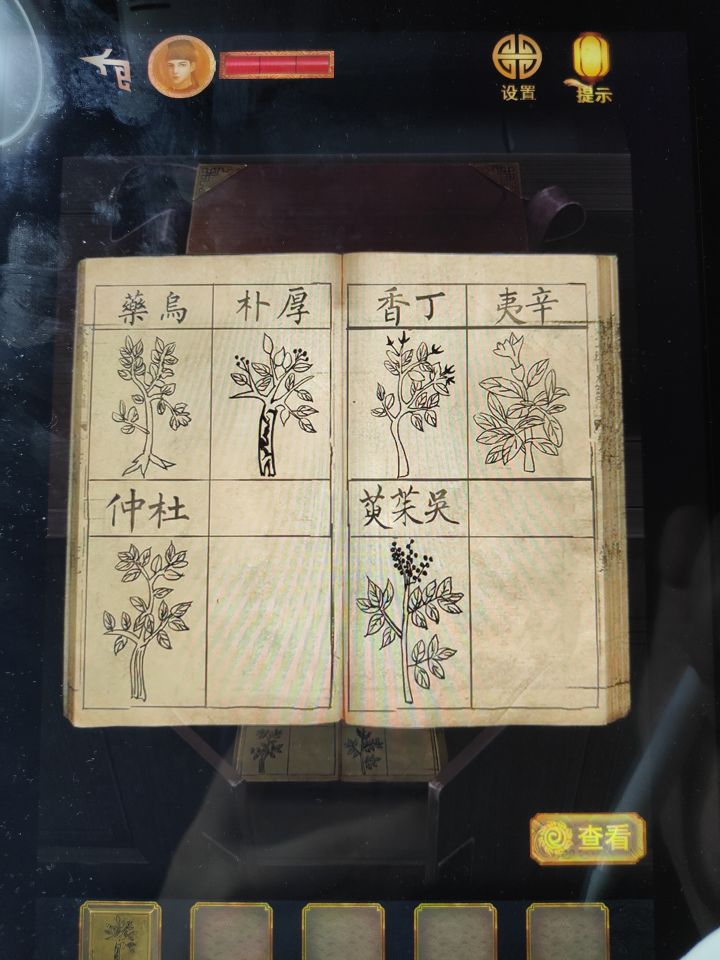 设置
提示
辛夷
丁香
厚朴
烏藥
吳茱萸
杜仲
查看